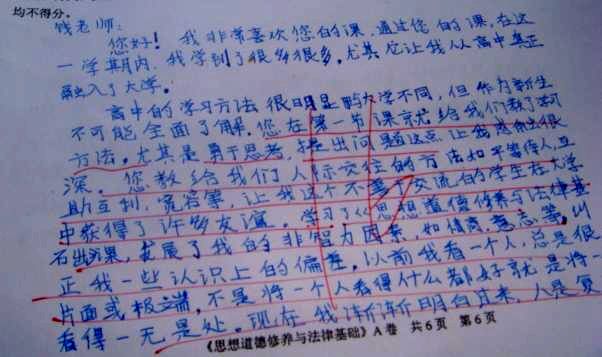 均不得分。
钱老师:
您好! 我非常喜欢您的课,通过您的课,在这
一学期内,我学到了很多很多,尤其它让我从高中真正
融入了大学。
高中的学习方法很明显跟大学不同,但作为新生
不可能全面了解,您在第一节课就给我们教了学习
方法,尤其是勇于思考,提出问题这点让我感触很
深。您教给我们人际交往的方法如平等待人,互
助互利,宽容等,让我这个不善于交流的学生在大学
中获得了许多友谊。学习了《思想道德修养与法律基
础》后,发展了我的非智力因素,如情商,意志等,纠
正我一些认识上的偏差。以前我看一个人,总是很
片面或极端,不是将一个人看得什么都好就是将一
看得一无是处。现在我渐渐明白过来,人是复
《思想道德修养与法律基础》A卷 共6页 第6页